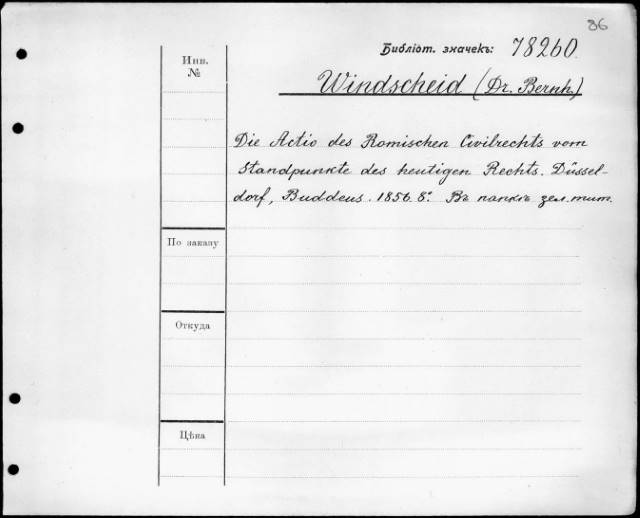 86
Библіот. значекъ: 78260.
Инв. №
Windscheid (Dr. Bernh.)
Die Actio des Romischen Civilrechts vom
Standpunkte des heutigen Rechts. Düssel-
dorf, Buddeus. 1856. 8º. Въ папкѣ зел. тит.
По заказу
Откуда
Цѣна